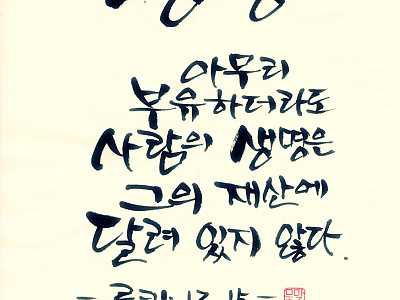 아무리
부유하더라도
사람의 생명은
그의 재산에
달려 있지 않다.